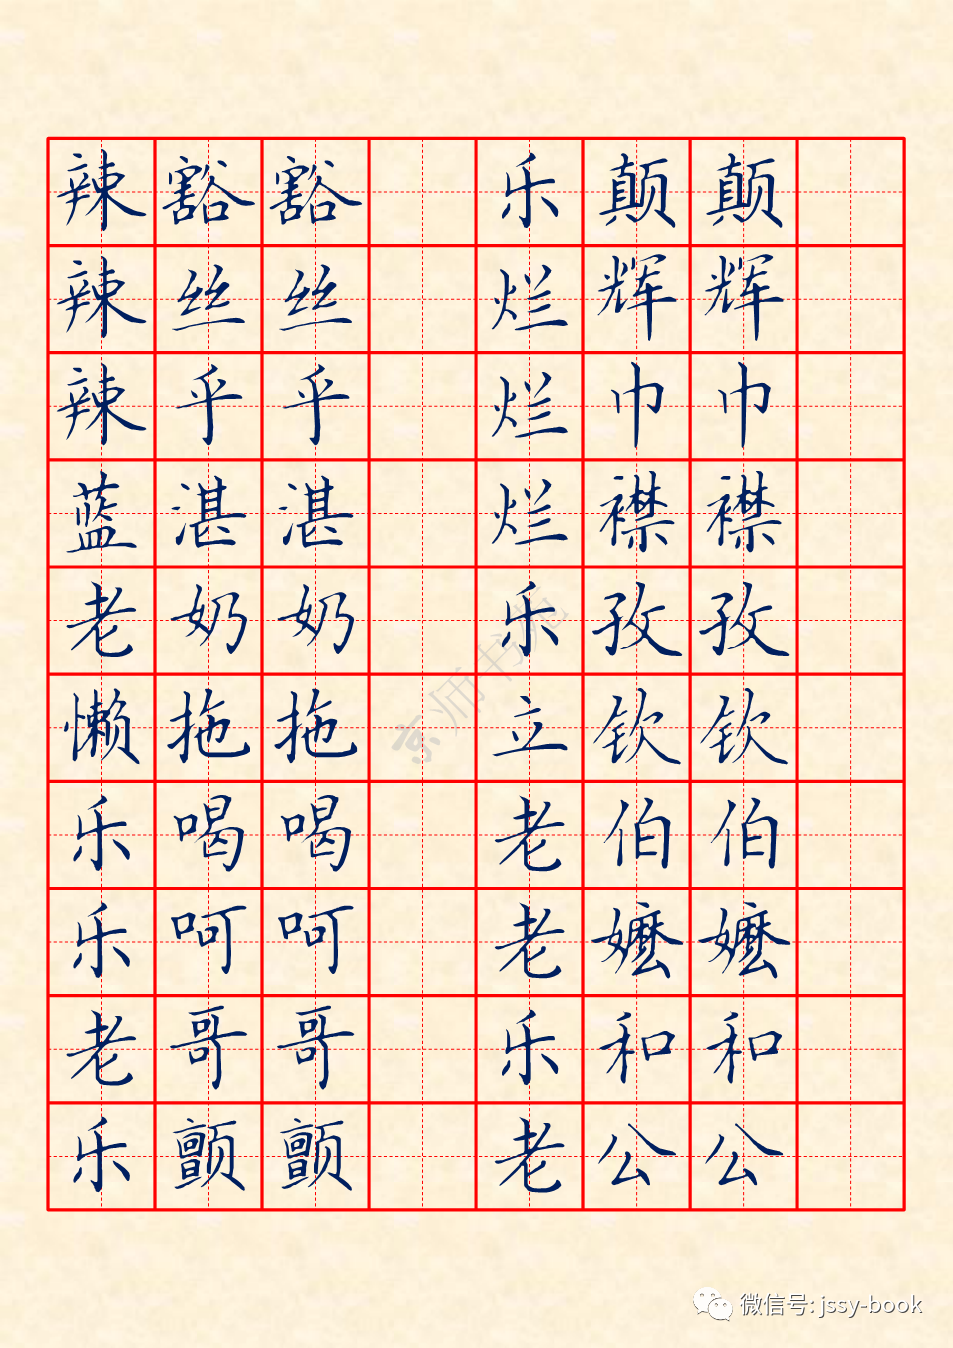 辣豁豁 乐颠颠
辣丝丝 烂辉辉
辣乎乎 烂巾巾
蓝湛湛 烂襟襟
老奶奶 乐孜孜
懒拖拖 立钦钦
乐喝喝 老伯伯
乐呵呵 老嬷嬷
老哥哥 乐和和
乐颤颤 老公公
京师书苑
微信号: jssy-book